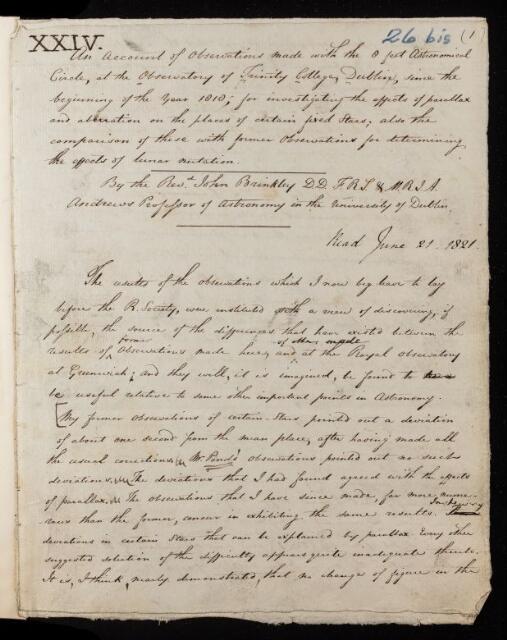 26 bis (1
XXIV.
An Account of Observations made with the 8 feet Astronomical
Circle, at the Observatory of Trinity College, Dublin, since the
beginning of the Year 1818; for investigating the effects of parallax
and aberration on the places of certain fixed Stars; also the
comparison of these with former Observations for determining
the effects of lunar nutation.
By the Revd. John Brinkley D.D. F.R.S. & M.R.I.A.
Andrews Professor of Astronomy in the University of Dublin.
Read June 21. 1821.
The results of the observations which I now beg leave to lay
before the R. Society, were instituted with a view of discovering, if
possible, the source of the differences that have existed between the
results of former Observations made here, and of those made at the Royal observatory
at Greenwich; and they will, it is imagined, be found to
be useful relative to some other important points in Astronomy.
[My former observations of certain Stars pointed out a deviation
of about one second from the mean place, after having made all
the usual corrections. Mr. Pond's observations pointed out no such
deviations. The deviations that I had found agreed with the effects
of parallax. The observations that I have since made, far more nume-
rous than the former, concur in exhibiting the same results.
deviations in certain Stars that can be explained by parallax Every other
suggested solution of the difficulty appears quite inadequate
It is, I think, nearly demonstrated, that no change of figure in the